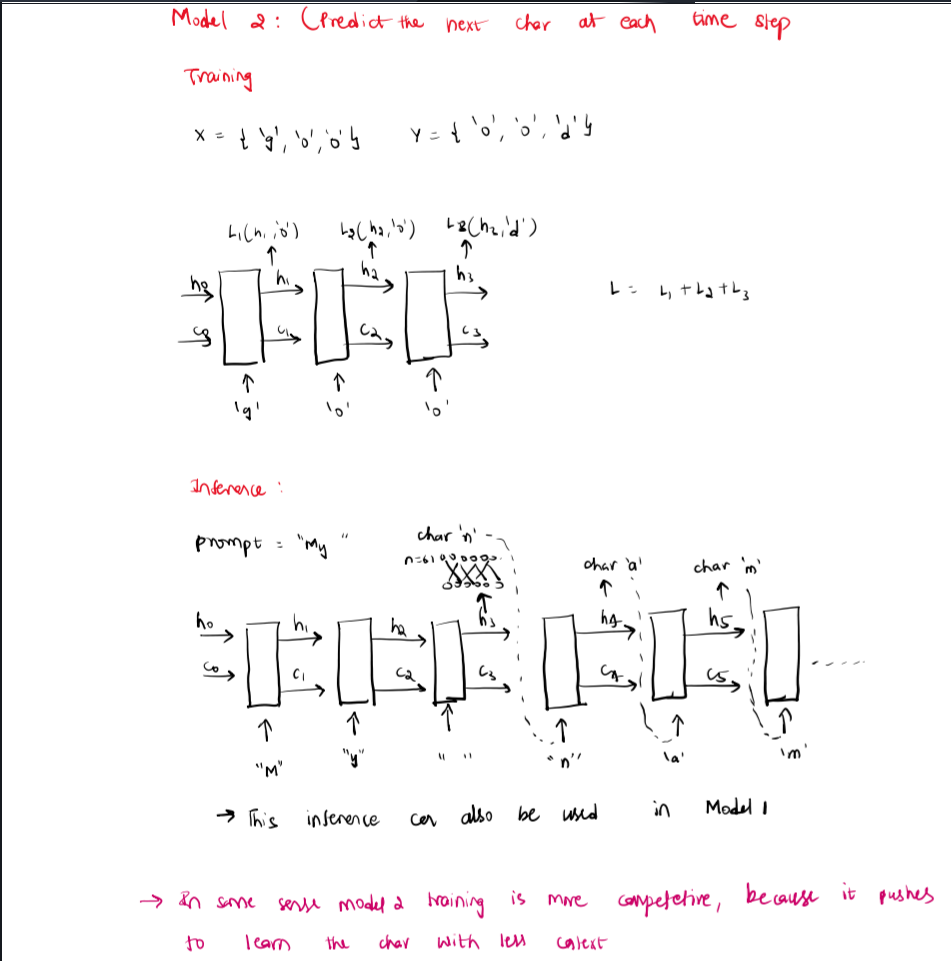 Model 2 : (Predict the next char at each time step
Training
X = { 'g', 'o', 'o' } Y = { 'o', 'o', 'd' }
L1(h1, 'o') L2(h2, 'o') L3(h2, 'd')
h0 h1 h2 h3
L = L1 + L2 + L3
c0 c1 c2 c3
'g' 'o' 'o'
Inference :
prompt = "My "
char 'n'
n=61
char 'a' char 'm'
h0 h1 h2 h3 h4 h5
c0 c1 c2 c3 c4 c5
"M" "y" " " "n" 'a' 'm'
→ This inference can also be used in Model 1
→ In some sense model 2 training is more competetive, because it pushes
to learn the char with less cotext